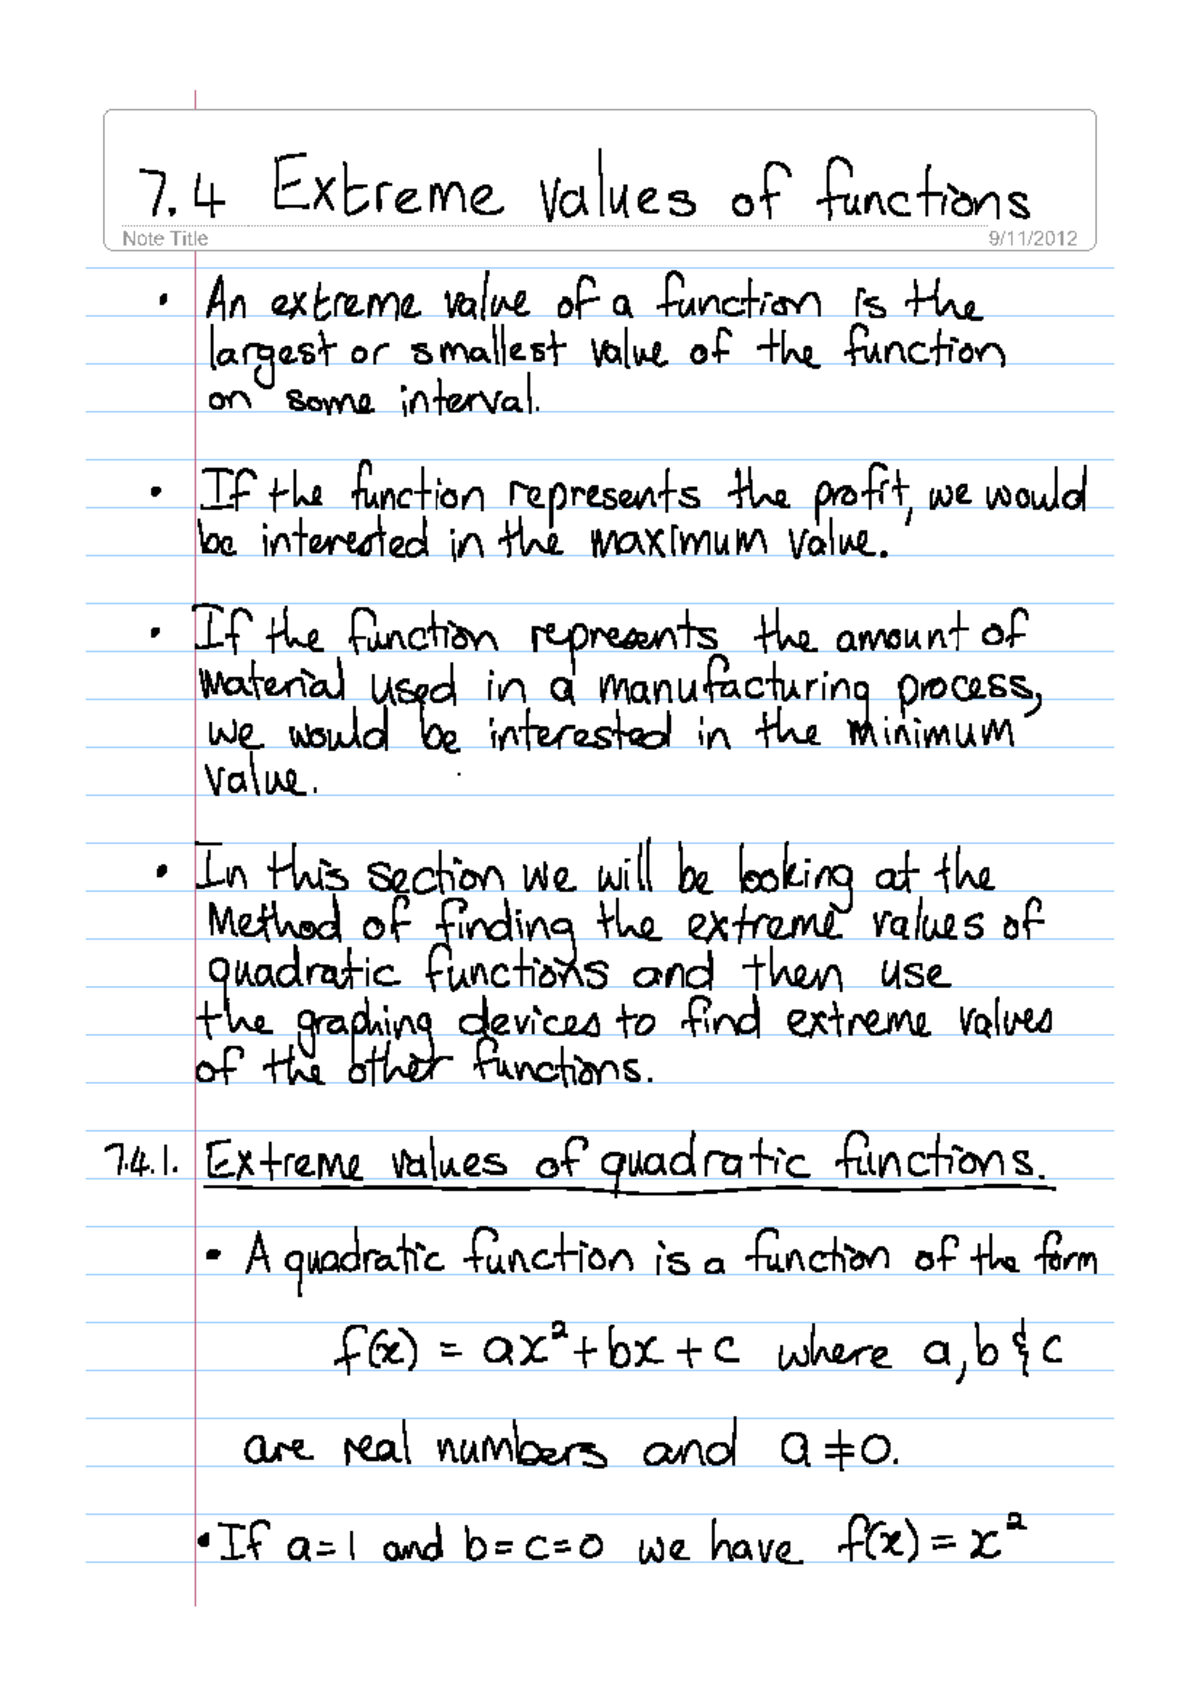 7.4 Extreme values of functions
Note Title
9/11/2012
• An extreme value of a function is the
largest or smallest value of the function
on some interval.
• If the function represents the profit, we would
be interested in the maximum value.
• If the function represents the amount of
material used in a manufacturing process,
we would be interested in the minimum
value.
• In this section we will be looking at the
Method of finding the extreme values of
quadratic functions and then use
the graphing devices to find extreme values
of the other functions.
7.4.1. Extreme values of quadratic functions.
• A quadratic function is a function of the form
f(x) = ax²+bx+c where a,b & c
are real numbers and a≠0.
• If a=1 and b=c=0 we have f(x)=x²